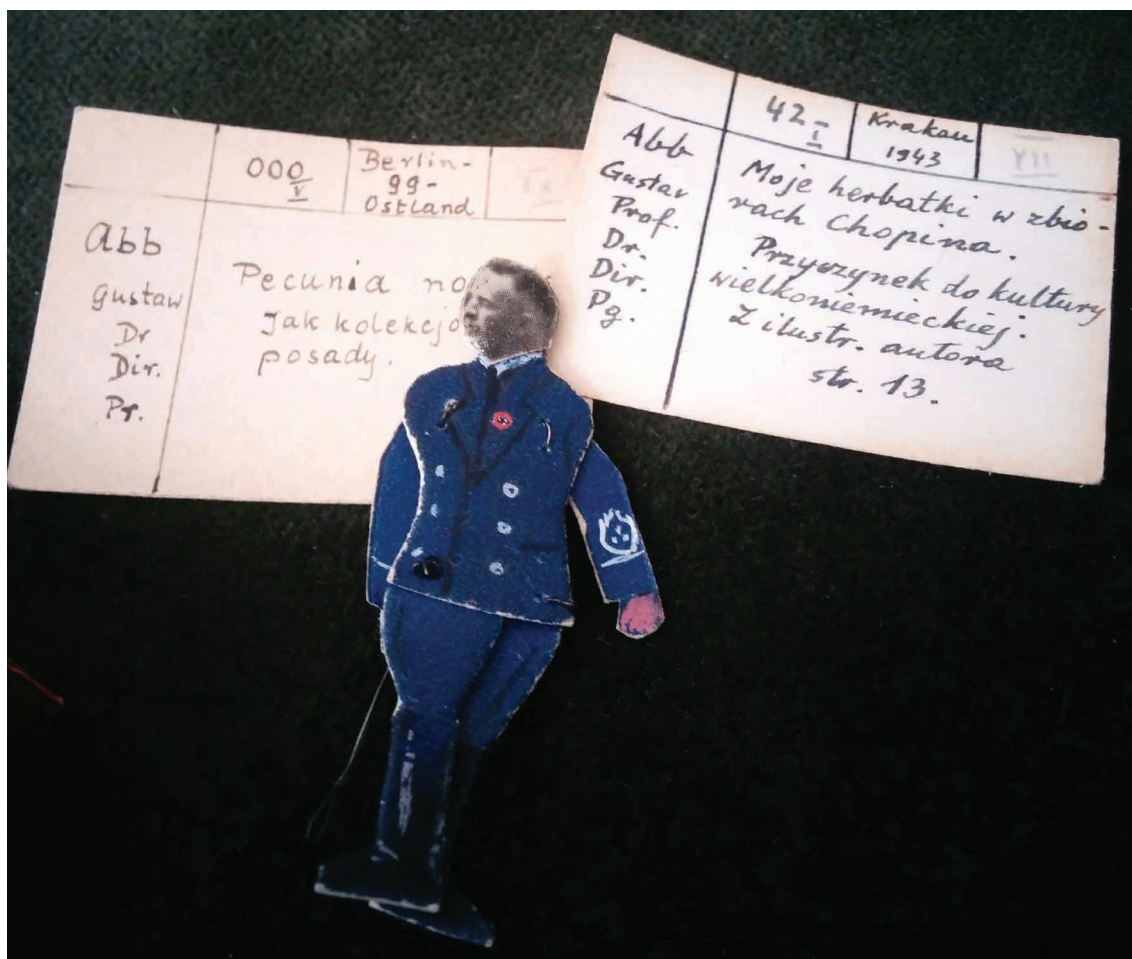 000
V
Berlin-
gg-
Ostland
Abb
Gustaw
Dr
Dir.
Pr.
Pecunia no
Jak kolekcjo
posady.
42-
I
Krakau
1943
VII
Abb
Gustav
Prof.
Dr.
Dir.
Pg.
Moje herbatki w zbio-
rach Chopina.
Przyczynek do kultury
wielkoniemieckiej.
Z ilustr. autora
str. 13.